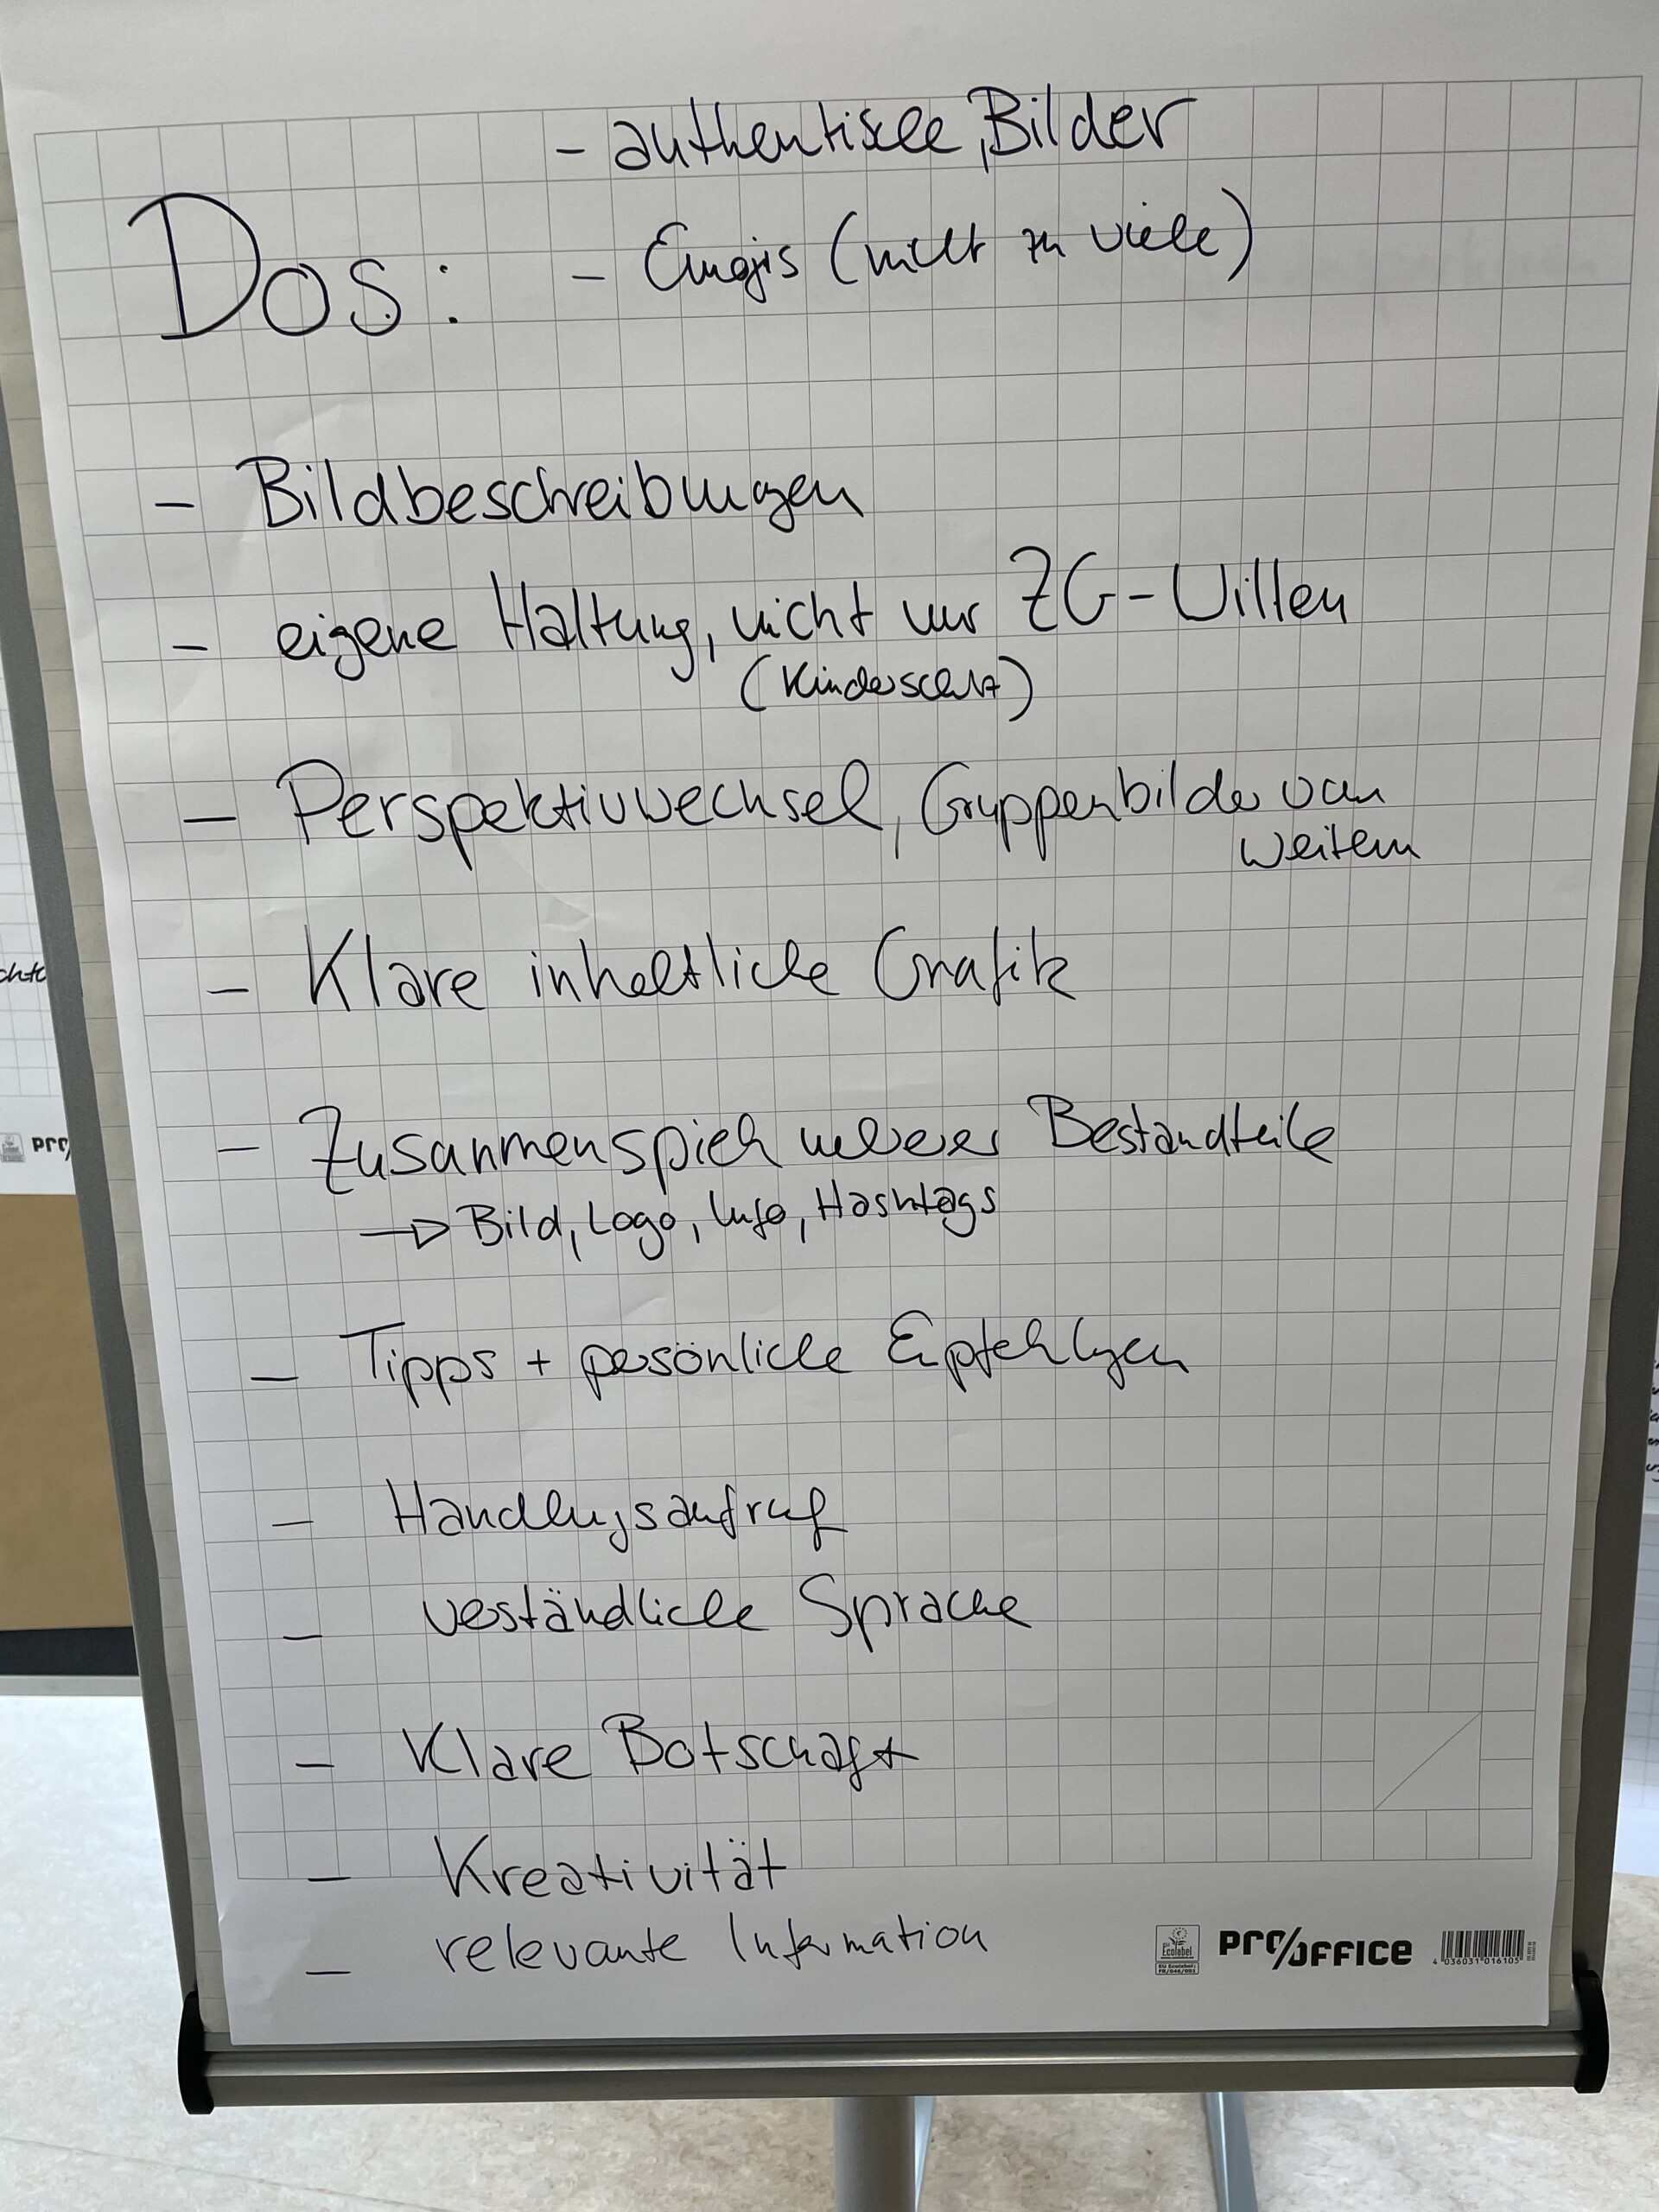 - authentische, Bilder
Dos:
- Emojis (nicht zu viele)
- Bildbeschreibungen
- eigene Haltung, nicht nur ZG-Willen
(Kinderschutz)
- Perspektivwechsel, Gruppenbilder von
weitem
- Klare inhaltliche Grafik
- Zusammenspiel mehrerer Bestandteile
→ Bild, Logo, Info, Hashtags
- Tipps + persönliche Empfehlungen
- Handlungsaufruf
- verständliche Sprache
- Klare Botschaft
- Kreativität
- relevante Information
Ecolabel
PRO/OFFICE
4 036031 016105